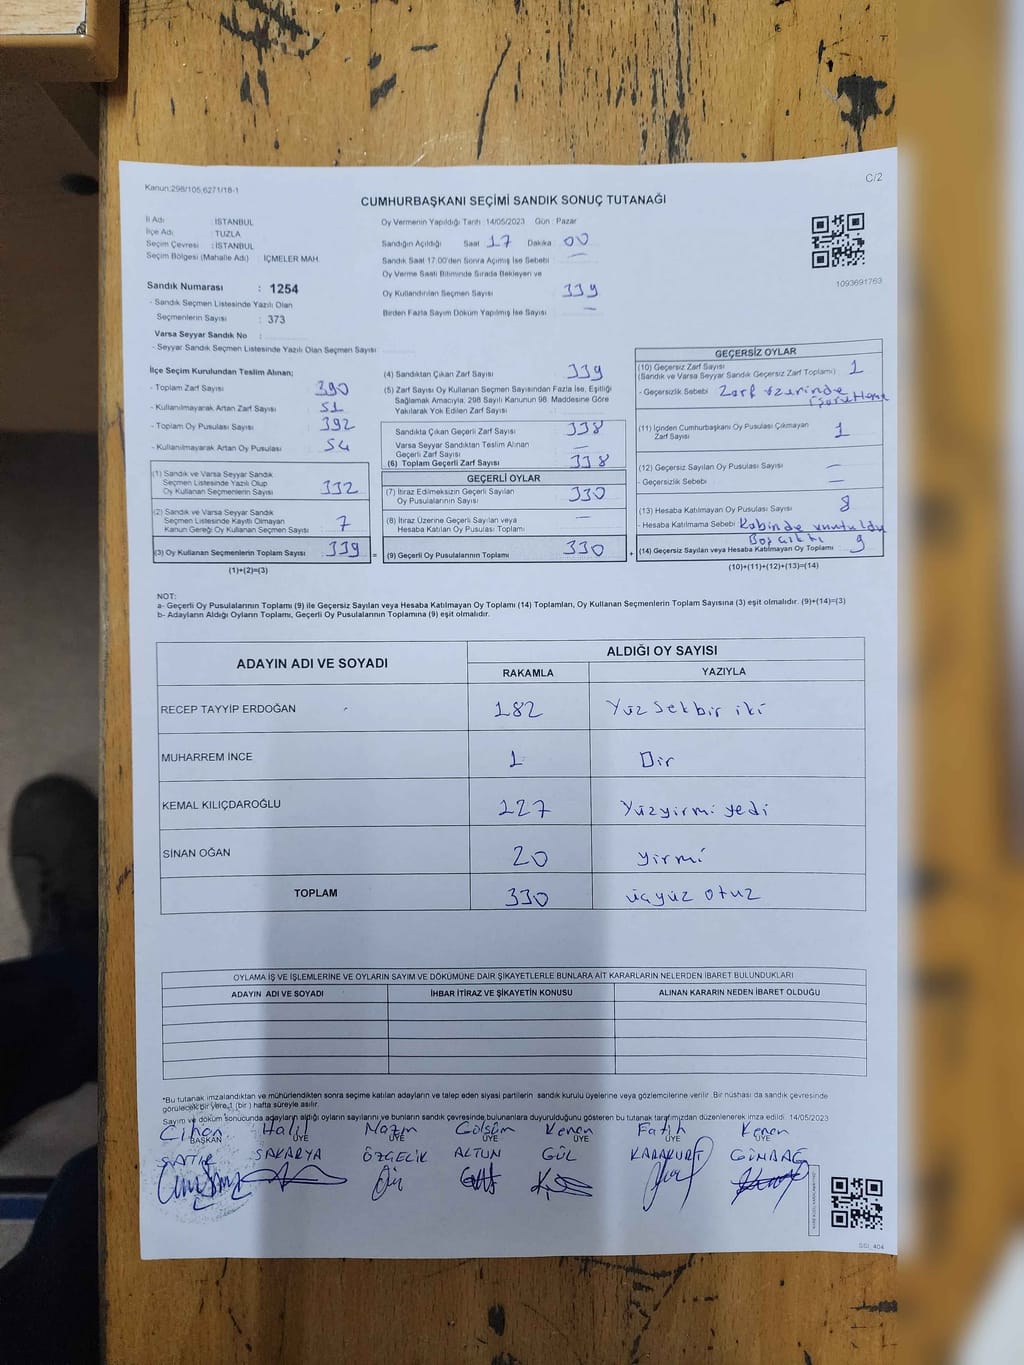 Kanun:298/105;6271/18-1
C/2
CUMHURBAŞKANI SEÇİMİ SANDIK SONUÇ TUTANAĞI
İl Adı : İSTANBUL
İlçe Adı : TUZLA
Seçim Çevresi : İSTANBUL
Seçim Bölgesi (Mahalle Adı) : İÇMELER MAH.
Oy Vermenin Yapıldığı Tarih :14/05/2023 Gün : Pazar
Sandığın Açıldığı Saat 17 Dakika 00
Sandık Saat 17.00'den Sonra Açımış İse Sebebi
Oy Verme Saati Bitiminde Sırada Bekleyen ve
Oy Kullandırılan Seçmen Sayısı 339
Birden Fazla Sayım Döküm Yapılmış İse Sayısı —
1093691763
Sandık Numarası : 1254
- Sandık Seçmen Listesinde Yazılı Olan
Seçmenlerin Sayısı : 373
Varsa Seyyar Sandık No :
- Seyyar Sandık Seçmen Listesinde Yazılı Olan Seçmen Sayısı
İlçe Seçim Kurulundan Teslim Alınan;
- Toplam Zarf Sayısı 390
- Kullanılmayarak Artan Zarf Sayısı 51
- Toplam Oy Pusulası Sayısı 392
- Kullanılmayarak Artan Oy Pusulası 54
(1) Sandık ve Varsa Seyyar Sandık
Seçmen Listesinde Yazılı Olup
Oy Kullanan Seçmenlerin Sayısı 332
(2) Sandık ve Varsa Seyyar Sandık
Seçmen Listesinde Kayıtlı Olmayan
Kanun Gereği Oy Kullanan Seçmen Sayısı 7
(3) Oy Kullanan Seçmenlerin Toplam Sayısı 339 =
(1)+(2)=(3)
(4) Sandıktan Çıkan Zarf Sayısı 339
(5) Zarf Sayısı Oy Kullanan Seçmen Sayısından Fazla İse, Eşitliği
Sağlamak Amacıyla; 298 Sayılı Kanunun 98. Maddesine Göre
Yakılarak Yok Edilen Zarf Sayısı
Sandıkta Çıkan Geçerli Zarf Sayısı 338
Varsa Seyyar Sandıktan Teslim Alınan
Geçerli Zarf Sayısı —
(6) Toplam Geçerli Zarf Sayısı 338
GEÇERLİ OYLAR
(7) İtiraz Edilmeksizin Geçerli Sayılan
Oy Pusulalarının Sayısı 330
(8) İtiraz Üzerine Geçerli Sayılan veya
Hesaba Katılan Oy Pusulası Toplamı —
(9) Geçerli Oy Pusulalarının Toplamı 330 +
GEÇERSİZ OYLAR
(10) Geçersiz Zarf Sayısı 1
(Sandık ve Varsa Seyyar Sandık Geçersiz Zarf Toplamı)
- Geçersizlik Sebebi Zarf üzerinde
işaretleme
(11) İçinden Cumhurbaşkanı Oy Pusulası Çıkmayan
Zarf Sayısı 1
(12) Geçersiz Sayılan Oy Pusulası Sayısı —
- Geçersizlik Sebebi —
(13) Hesaba Katılmayan Oy Pusulası Sayısı 8
- Hesaba Katılmama Sebebi Kabinde unutuldu
Boş çıktı
(14) Geçersiz Sayılan veya Hesaba Katılmayan Oy Toplamı 9
(10)+(11)+(12)+(13)=(14)
NOT:
a- Geçerli Oy Pusulalarının Toplamı (9) ile Geçersiz Sayılan veya Hesaba Katılmayan Oy Toplamı (14) Toplamları, Oy Kullanan Seçmenlerin Toplam Sayısına (3) eşit olmalıdır. (9)+(14)=(3)
b- Adayların Aldığı Oyların Toplamı, Geçerli Oy Pusulalarının Toplamına (9) eşit olmalıdır.
ADAYIN ADI VE SOYADI
ALDIĞI OY SAYISI
RAKAMLA YAZIYLA
RECEP TAYYİP ERDOĞAN 182 Yüz Sekbir iki
MUHARREM İNCE 1 Bir
KEMAL KILIÇDAROĞLU 127 Yüzyirmi yedi
SİNAN OĞAN 20 Yirmi
TOPLAM 330 üçyüz otuz
OYLAMA İŞ VE İŞLEMLERİNE VE OYLARIN SAYIM VE DÖKÜMÜNE DAİR ŞİKAYETLERLE BUNLARA AİT KARARLARIN NELERDEN İBARET BULUNDUKLARI
ADAYIN ADI VE SOYADI İHBAR İTİRAZ VE ŞİKAYETİN KONUSU ALINAN KARARIN NEDEN İBARET OLDUĞU
*Bu tutanak imzalandıktan ve mühürlendikten sonra seçime katılan adayların ve talep eden siyasi partilerin sandık kurulu üyelerine veya gözlemcilerine verilir. Bir nüshası da sandık çevresinde
görülecek bir yere 1 (bir) hafta süreyle asılır.
Sayım ve döküm sonucunda adayların aldığı oyların sayılarını ve bunların sandık çevresinde bulunanlara duyurulduğunu gösteren bu tutanak tarafımızdan düzenlenerek imza edildi. 14/05/2023
Cihan Halil Nazım Gülsüm Kenan Fatih Kenan
BAŞKAN ÜYE ÜYE ÜYE ÜYE ÜYE ÜYE
SATIR SAKARYA ÖZÇELİK ALTUN GÜL KARAKURT GÜNDAĞ
SGI_404